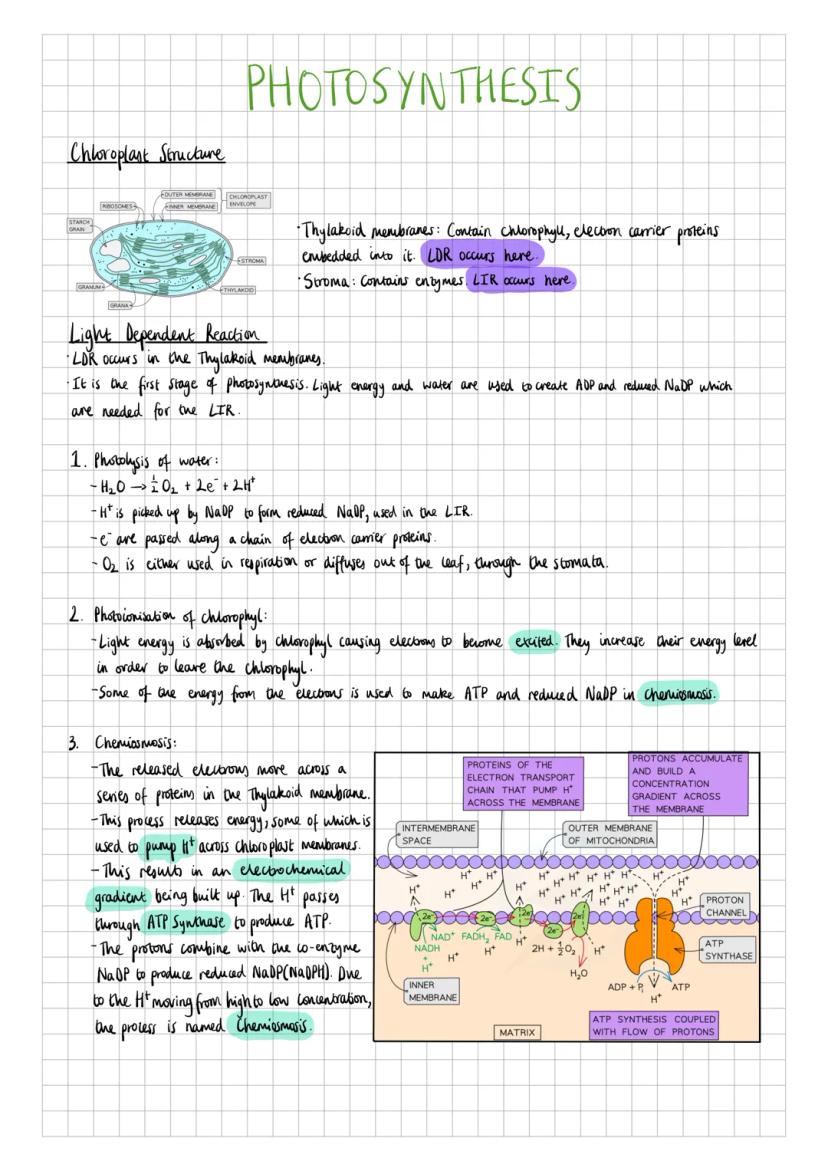 PHOTOSYNTHESIS
Chloroplast Structure
OUTER MEMBRANE
INNER MEMBRANE
CHLOROPLAST
ENVELOPE
RIBOSOMES
STARCH
GRAIN
STROMA
GRANUM
THYLAKOID
GRANA
·Thylakoid membranes: Contain chlorophyll, electron carrier proteins
embedded into it. LDR occurs here.
·Stroma: Contains enzymes. LIR occurs here.
Light Dependent Reaction
·LDR occurs in the Thylakoid membranes.
·It is the first stage of photosynthesis. Light energy and water are used to create ADP and reduced NaDP which
are needed for the LIR.
1. Photolysis of water:
- H₂O → ½ O₂ + 2e⁻ + 2H⁺
- H⁺ is picked up by NaDP to form reduced NaDP, used in the LIR.
- e⁻ are passed along a chain of electron carrier proteins.
- O₂ is either used in respiration or diffuses out of the leaf, through the stomata.
2. Photoionisation of chlorophyl:
- Light energy is absorbed by chlorophyl causing electrons to become excited. They increase their energy level
in order to leave the chlorophyl.
- Some of the energy from the electrons is used to make ATP and reduced NaDP in chemiosmosis.
3. Chemiosmosis:
- The released electrons move across a
series of proteins in the Thylakoid membrane.
- This process releases energy, some of which is
used to pump H⁺ across chloroplast membranes.
- This results in an electrochemical
gradient being built up. The H⁺ passes
through ATP Synthase to produce ATP.
- The protons combine with the co-enzyme
NaDP to produce reduced NaDP(NaDPH). Due
to the H⁺ moving from high to low concentration,
the process is named Chemiosmosis.
PROTEINS OF THE
ELECTRON TRANSPORT
CHAIN THAT PUMP H⁺
ACROSS THE MEMBRANE
PROTONS ACCUMULATE
AND BUILD A
CONCENTRATION
GRADIENT ACROSS
THE MEMBRANE
INTERMEMBRANE
SPACE
OUTER MEMBRANE
OF MITOCHONDRIA
H⁺ H⁺ H⁺ H⁺ H⁺ H⁺ H⁺ H⁺
H⁺ H⁺ H⁺ H⁺ H⁺ H⁺ H⁺ H⁺
PROTON
CHANNEL
2e⁻ 2e⁻ 2e⁻ 2e⁻ 2e⁻
NAD⁺ FADH₂ FAD H⁺
NADH
+
H⁺
H⁺ H⁺ H⁺
2H + ½ O₂
H⁺
H₂O
ATP
SYNTHASE
INNER
MEMBRANE
ADP + Pᵢ ATP
H⁺
MATRIX
ATP SYNTHESIS COUPLED
WITH FLOW OF PROTONS